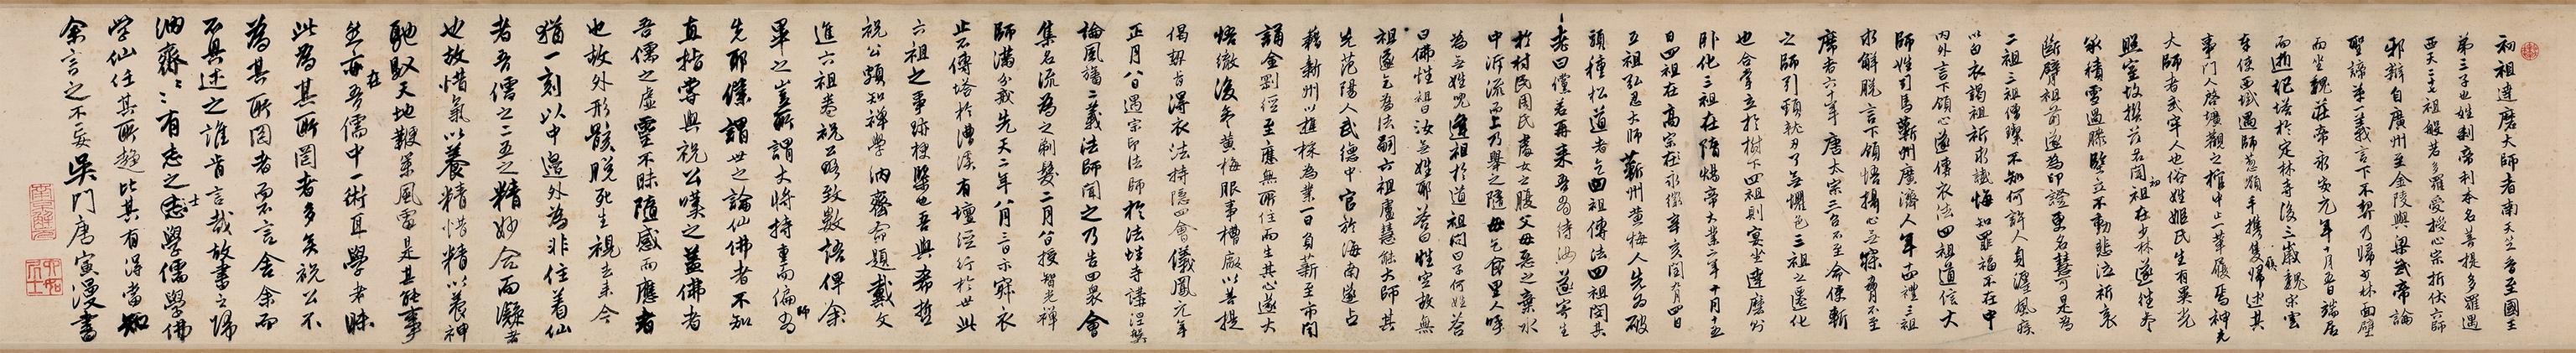 初祖達磨大師者南天竺香至國王
第三子也姓剎帝利本名菩提多羅遇
西天二十七祖般若多羅愛授心宗折伏六師
邪辯自廣州至金陵與梁武帝論
聖諦第一義言下不契乃歸少林面壁
而坐魏莊帝永安元年十月五日端居
而逝塟塔於定林寺後三歲魏宋雲
奉使西域遇師葱嶺手攜隻履歸述其
事門人啓壙觀之棺中止一革履焉神光
大師者武牢人也俗姓姬氏生有異光
照室故攜名光聞初祖在少林遂往參
承積雪過膝堅立不動悲泣祈哀
斷臂祖前遂為印證更名慧可是為
二祖三祖僧璨不知何許人身纏風疾
以白衣謁祖祈求懺悔知罪福不在中
內外言下領心遂傳衣法四祖道信大
師姓司馬蘄州廣濟人年十四禮三祖
求解脫言下領悟攝心無寐脅不至
席者六十年唐太宗三召不至命使斬
之師引頸就刃了無懼色三祖之遷化
也合掌立於樹下四祖則宴坐達磨則
卧化三祖在隋煬帝大業二年十月十五
日四祖在高宗永徽辛亥閏九月四日
五祖弘忍大師蘄州黃梅人先為破
頭種松道者乞四祖傳法四祖閔其
老曰儻若再來吾尚待汝遂寄生
於村民周氏處女之腹父母惡之棄水
中泝流而上乃舉之隨母乞食里人呼
為無姓兒逢祖於道祖問曰子何姓答
曰佛性祖曰汝無姓耶答曰性空故無
祖遂乞為法嗣六祖盧慧能大師其
先范陽人武德中官於海南遂占
籍新州以樵採為業一日負薪至市聞
誦金剛經至應無所住而生其心遂大
悟徹後參黃梅服事槽廠以菩提
偈契旨得衣法持隱四會儀鳳元年
正月八日遇宗印法師於法性寺講涅槃
論風旛二義法師聞之乃告四眾會
集名流為之剃髮二月八日授智光禪
師滿分戒先天二年八月三日示寂衣
止不傳塔於漕溪有壇經行於世此
六祖之事跡梗槩也吾與希哲
祝公頗知禪學汭齋命題戴文
進六祖卷祝公略致數語俾余
畢之豈所謂大將持重而偏師為
先耶余謂世之論仙佛者不知
直指處與祝公嘆之蓋佛者
吾儒之虛靈不昧隨感而應者
也故外形骸脫死生視去來今
猶一刻以中邊外為非住着仙
者吾儒之二五之精妙合而凝者
也故惜氣以養精惜精以養神
馳馭天地鞭策風雷是其能事
然亦在吾儒中一術耳學者昧
此為其所罔者多矣祝公不
為其所罔者而不言舍余而
不具述之誰肯言哉故書之歸
汭齋汭齋有志之士志學儒學佛
學仙任其所趨比其有得當知
余言之不妄吳門唐寅漫書